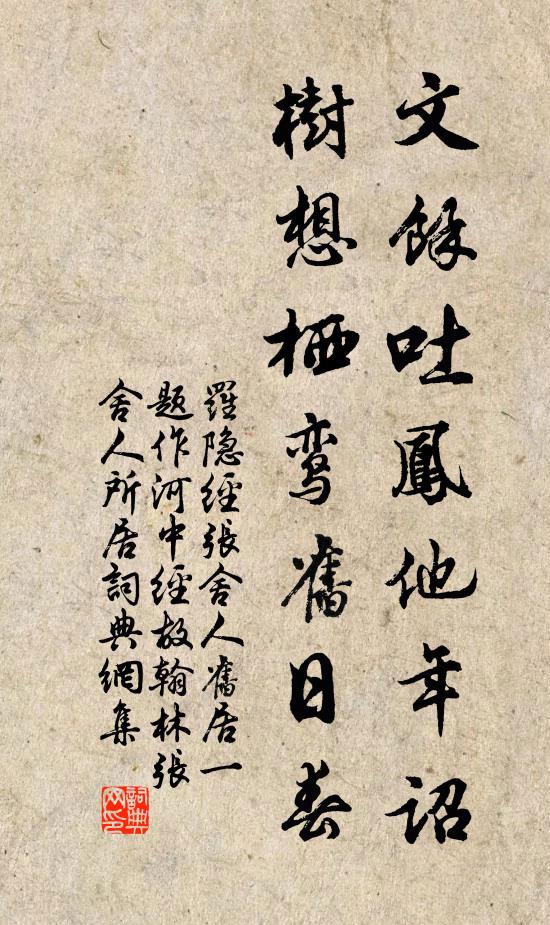 文餘吐鳳他年詔
樹想栖鸾舊日春
羅隐經張舍人舊居一
题作河中經故翰林張
舍人所居詞典網集
詞典网印